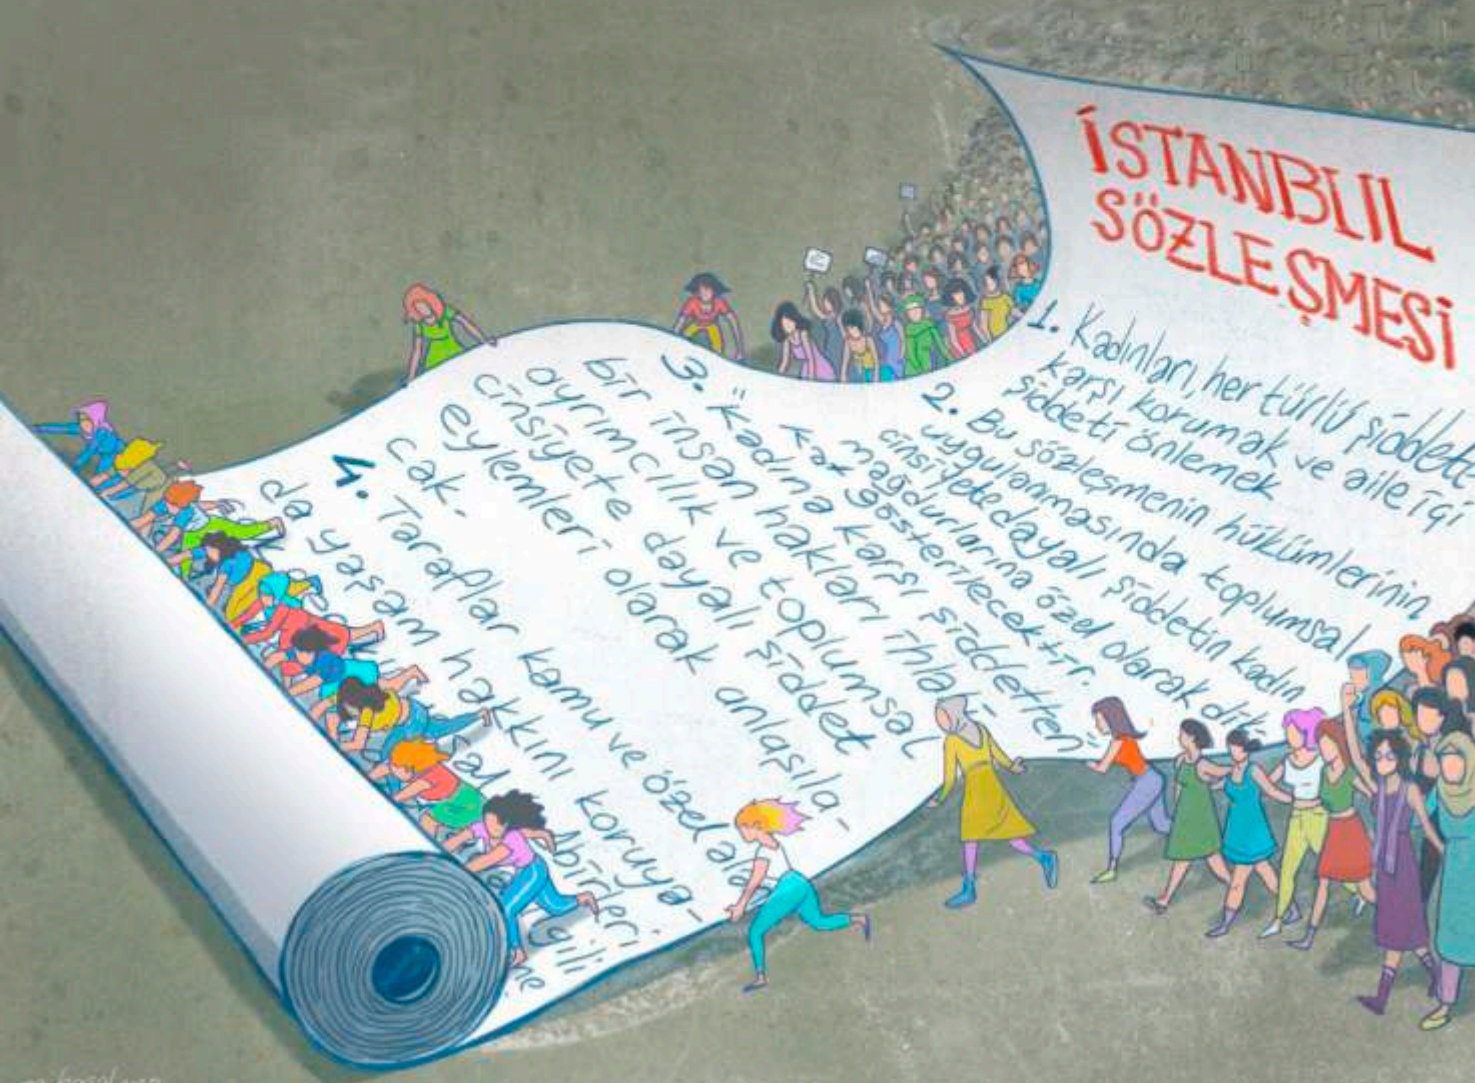 İSTANBUL
SÖZLEŞMESİ
1. Kadınları, her türlü şiddete
karşı korumak ve aile içi
şiddeti önlemek
2. Bu sözleşmenin hükümlerinin
uygulanmasında toplumsal
cinsiyete dayalı şiddetin kadın
mağdurlarına özel olarak dik
kat gösterilecektir.
3. "Kadına karşı şiddetten"
bir insan hakları ihlali
ayrımcılık ve toplumsal
cinsiyete dayalı şiddet
eylemleri olarak anlaşıla-
cak.
4. Taraflar kamu ve özel alan
da yaşam hakkını koruya-